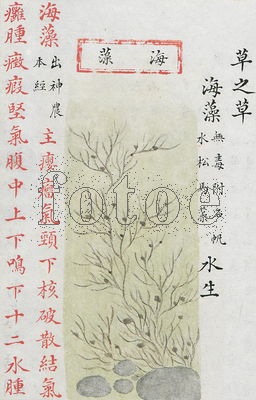 草之草
海藻 無毒附石帆
水松馬藻 水生
海藻
海藻 出神農
本經 主癭瘤氣頸下核破散結氣
癰腫癥瘕堅氣腹中上下鳴下十二水腫